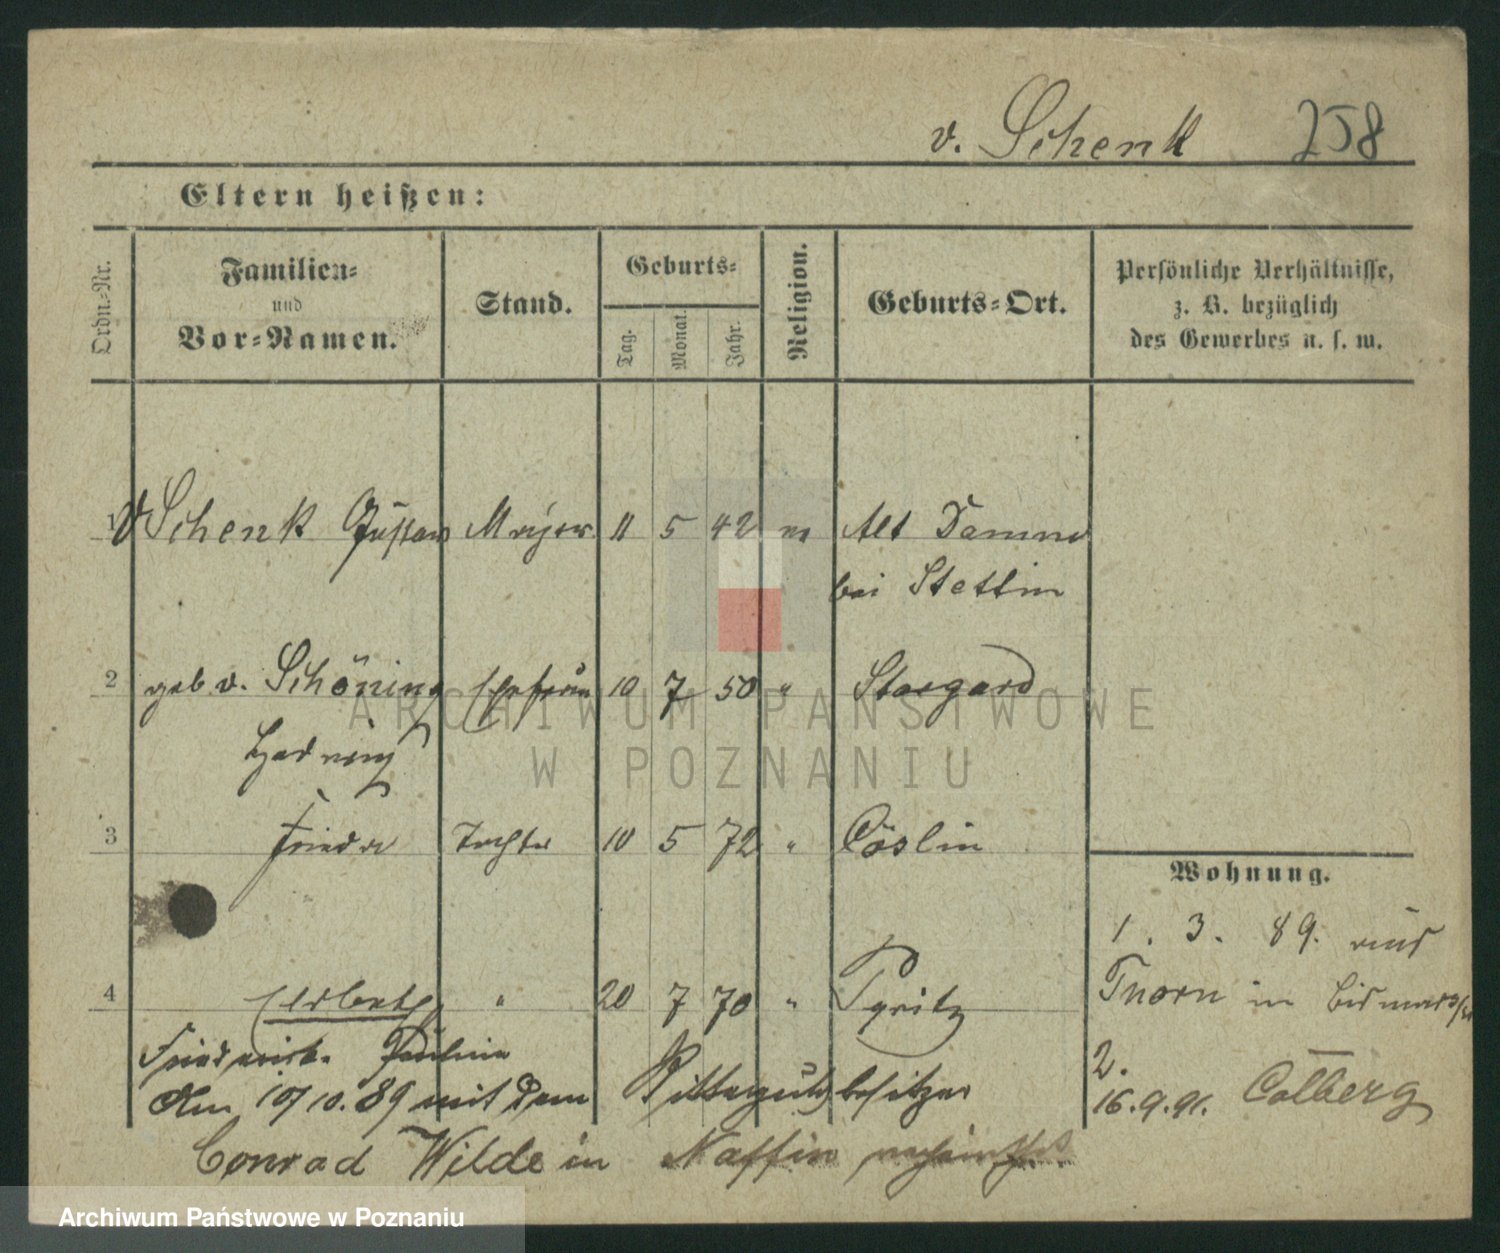 v. Schenk 258
Eltern heißen:
Ordn.-Nr.
Familien-
und
Vor-Namen.
Stand.
Geburts-
Tag.
Monat.
Jahr.
Religion.
Geburts-Ort.
Persönliche Verhältnisse,
z. B. bezüglich
des Gewerbes u. s. w.
1 v Schenk Gustav Major 11 5 42 ev Alt Damm
bei Stettin
2 geb v. Schöning Ehefrau 10 7 50 " Stargard
Hedwig
3 Frieda Tochter 10 5 72 " Cöslin
Wohnung.
1. 3. 89. aus
Thorn in Bismarckstr
4 " 20 7 70 " Pyritz
Pauline
Am 10/10.89 mit dem Rittergutsbesitzer
Conrad Wilde in Naffin
2.
16.9.91. Colberg
ARCHIWUM PAŃSTWOWE
W POZNANIU
Archiwum Państwowe w Poznaniu